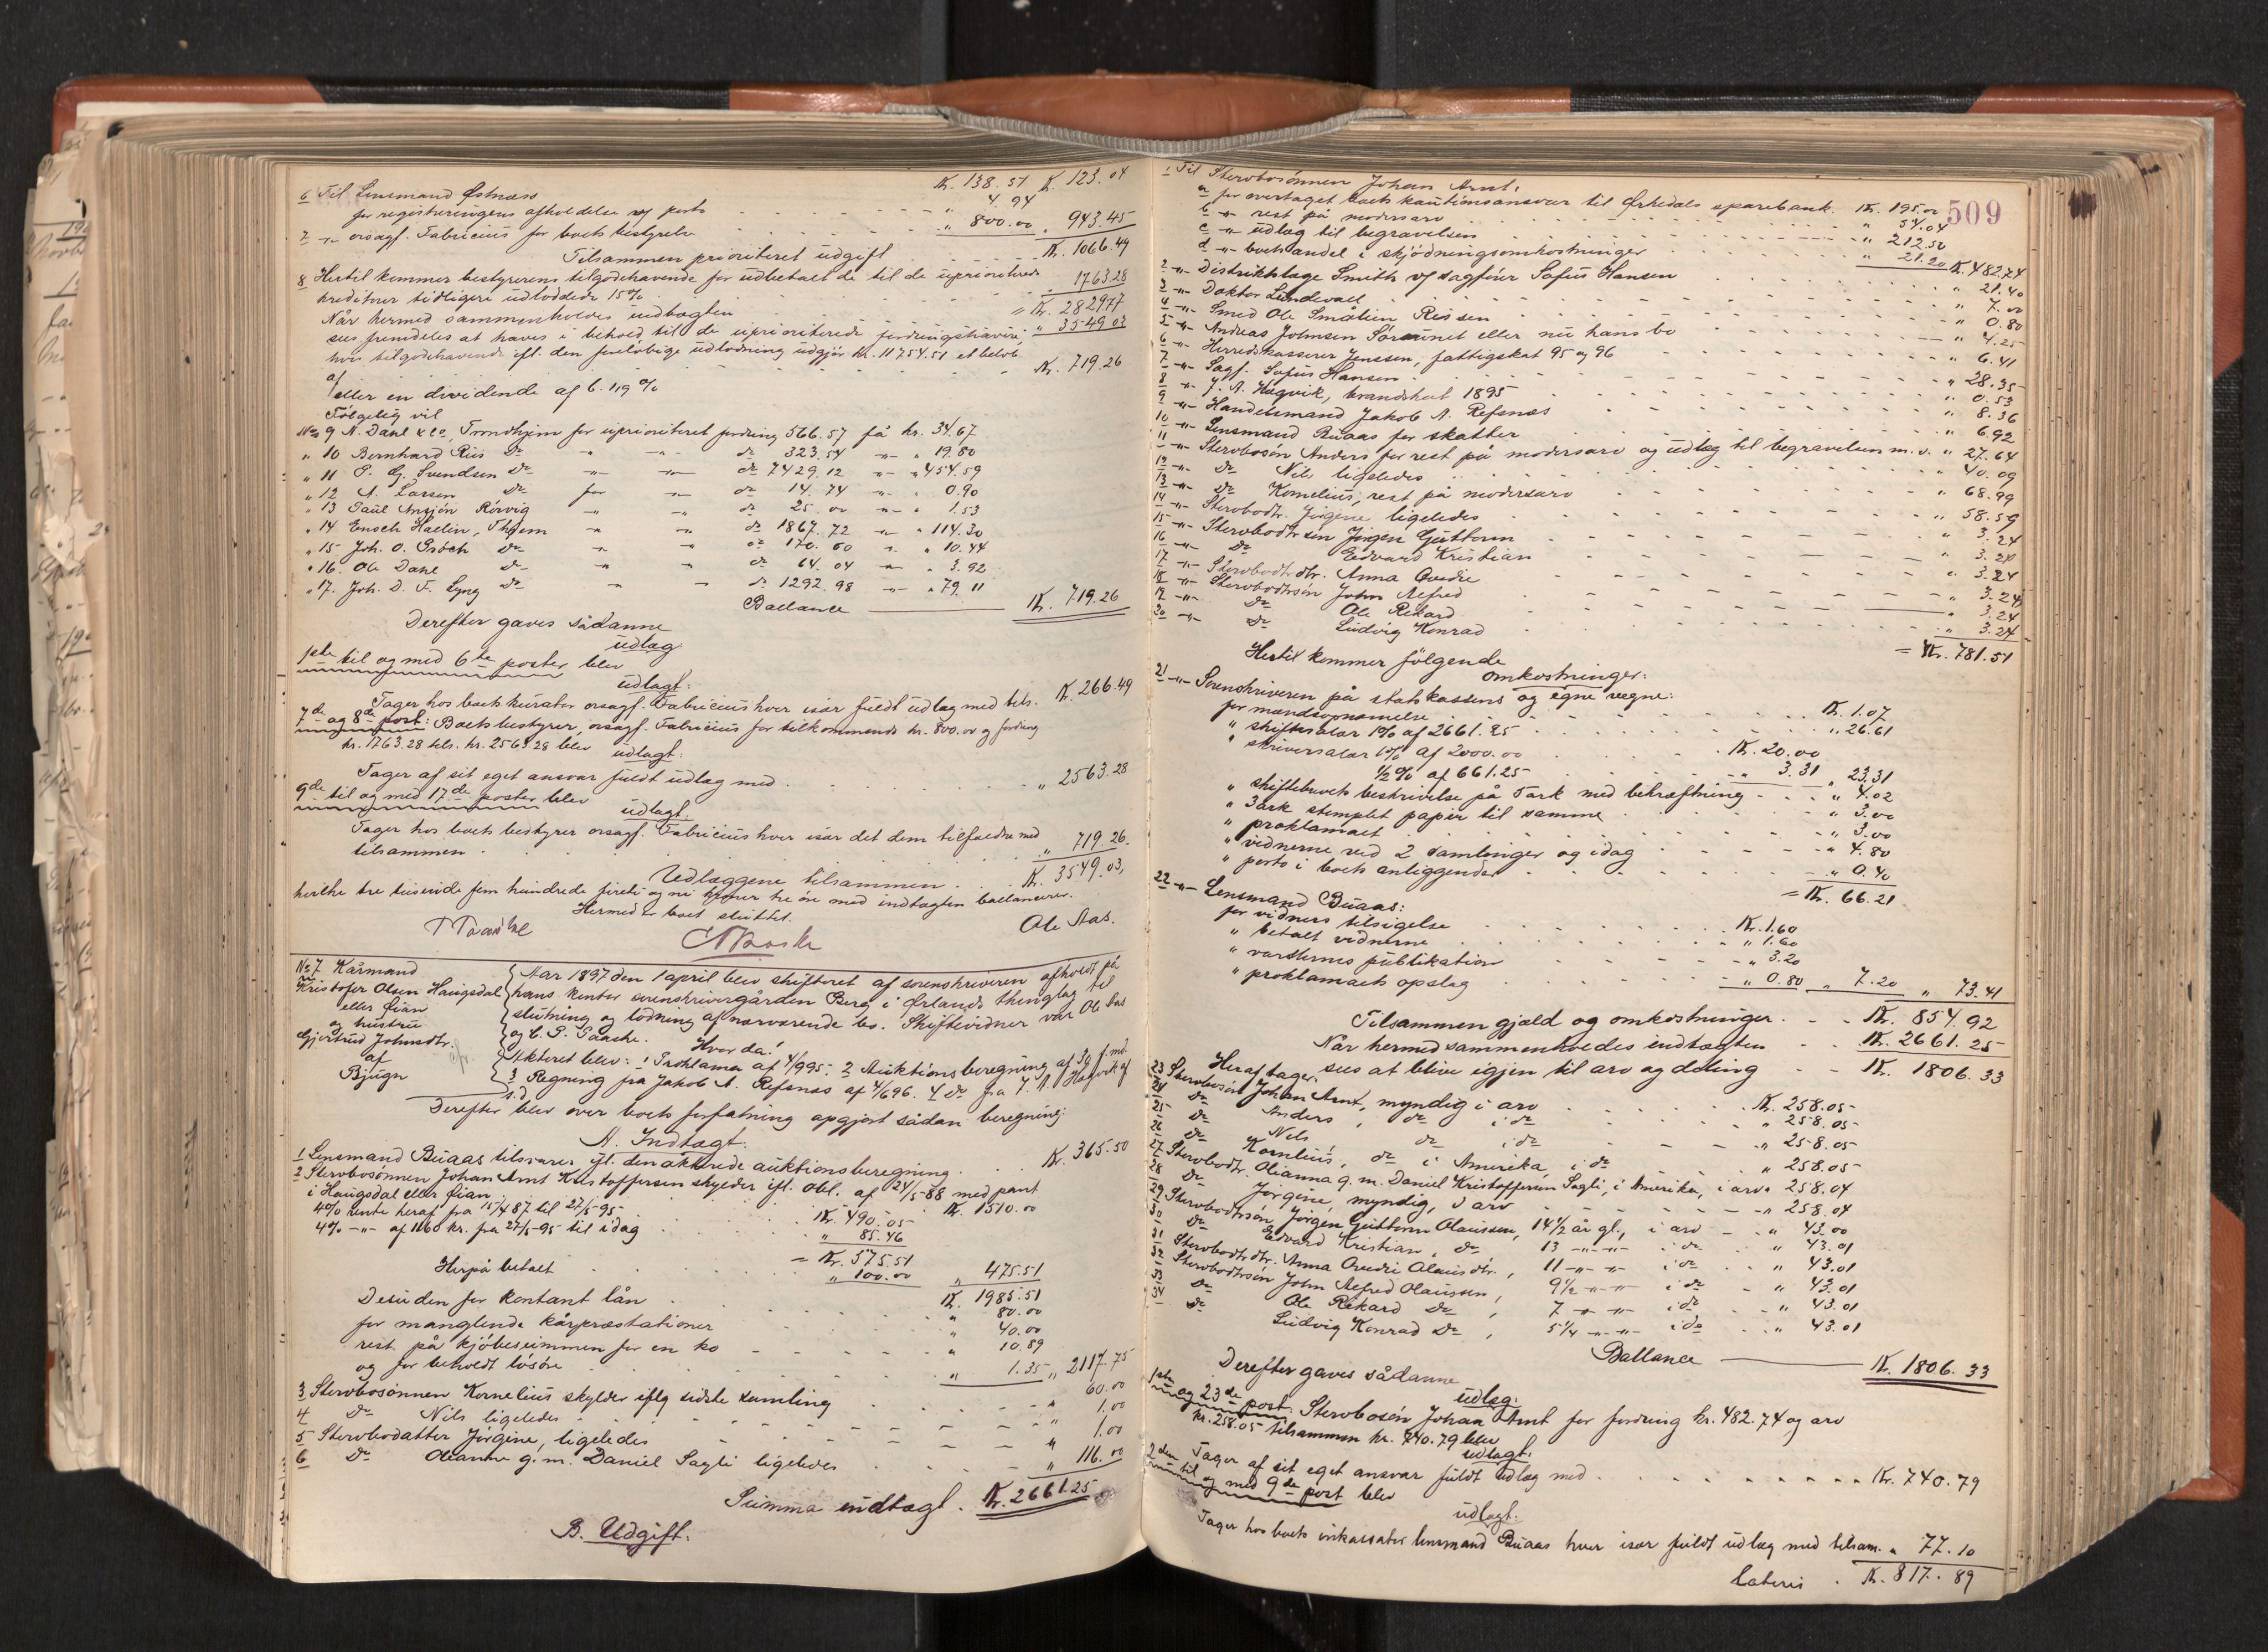 Kr. 138.51 Kr. 123.04
6 Til Lensmand Østnæss
for registreringens afholdelse og porto " 4.94
7 -"- orsagf. Fabricius for boets bestyrelse " 800.00 " 943.45
Tilsammen prioriteret udgift Kr. 1066.49
8 Hertil kommer bestyrerens tilgodehavende for udbetalt de til de uprioriterede
kreditorer tidligere udloddede 15% " 1763.28
= Kr. 2829.77
Når hermed sammenholdes indtægten " 3549.03
sees fremdeles at haves i behold til de uprioriterede fordringshavere,
hvis tilgodehavende efl. den foreløbige udlodning udgjør Kr. 11754.51 et beløb
af Kr. 719.26
eller en dividende af 6.119 %
Følgelig vil
No 9 N. Dahl & Co, Trondhjem for uprioriteret fordring 566.57 få kr. 34.67
" 10 Bernhard Riis Do " -"- do 323.54 -"- " 19.80
" 11 P. G. Svendsen Do -"- -"- do 7429.12 -"- " 454.59
" 12 A. Larsen Do for -"- do 14.74 -"- " 0.90
" 13 Paul Ansjøn Rørvig -"- -"- do 25.00 -"- " 1.53
" 14 Enoch Hallin, Thjem -"- -"- do 1867.72 -"- " 114.30
" 15 Joh. O. Grøch Do -"- -"- do 170.60 -"- " 10.44
" 16. Ole Dahl Do -"- -"- do 64.04 -"- " 3.92
" 17. Joh. D. F. Lyng Do -"- -"- do 1292.98 -"- " 79.11
Ballance Kr. 719.26
Derefter gaves sådanne
udlæg
1ste til og med 6te poster blev
udlagt:
Tager hos boets kurator orsagf. Fabricius hver især fuldt udlæg med tils. Kr. 266.49
7de og 8de post: Boets bestyrer, orsagf. Fabricius for tilkommende kr. 800.00 og fordring
kr. 1763.28 tils. kr. 2563.28 blev
udlagt:
Tager af sit eget ansvar fuldt udlæg med " 2563.28
9de til og med 17de poster blev
udlagt.
Tager hos boets bestyrer orsagf. Fabricius hver især det dem tilfaldne med
tilsammen " 719.26.
Udlæggene tilsammen Kr. 3549.03,
hvilke tre tusinde fem hundrede firti og ni kroner tre øre med indtægten ballancerer.
Hermed er boet sluttet.
Ole Aas.
No 7 Kårmand
Kristofer Olsen Haugsdal
eller Lian
og hustru
Gjertrud Johnsdtr.
af
Bjugn
Aar 1897 den 1 april blev skifteret af sorenskriveren afholdt på
hans kontor sorenskrivergården Berg i Ørlands thinglag til
slutning og lodning af nærværende bo. Skiftevidner var Ole Aas
og C. P. Paaske. Hvorda!
Akteret blev: 1 Proklama af 4/9 95. 2 Auktionsberegning af 3g f. md.
3 Regning fra Jakob A. Refsnæs af 4/6 96. 4 Do fra J. A. Hagvik af
s. d.
Derefter blev over boets forfatning opgjort sådan beregning
A. Indtægt.
1 Lensmand Buaas tilsvarer ifl. den akterede auktionsberegning Kr. 365.50
2 Stervbosønnen Johan Arnt Kristoffersen skylder ifl. obl. af 24/5 88 med pant
i Haugsdal eller Lian Kr. 1510.00
4% rente heraf fra 15/4 87 til 27/5 95 Kr. 490.05
4% -"- af 1160 kr. fra 27/5-95 til idag " 85.46
= Kr. 575.51
Herpå betalt " 100.00 " 475.51
Kr. 1985.51
Desuden for kontant lån " 80.00
for manglende kårpræstationer " 40.00
rest på kjøbesummen for en ko " 10.89
og for beholdt løsøre " 1.35 " 2117.75
3 Stervbosønnen Kornelius skylder iflg sidste samling " 60.00
4 Do Nils ligeledes " 1.00
5 Stervbodatter Jørgine, ligeledes " 1.00
6 Do Oleanna g. m. Daniel Sagli ligeledes " 116.00
Summa indtægt. Kr. 2661.25
B. Udgift.
509
1 Til Stervbosønnen Johan Arnt,
a for overtaget boets kautionsansvar til Ørkedals sparebank Kr. 195.00
b -"- rest på modersarv " 54.04
c -"- udlæg til begravelsen " 212.50
d -"- boets andel i skjødningsomkostninger " 21.20 Kr. 482.74
2 -"- Distriktslæge Smith v/ sagfører Sofus Hansen " 21.40
3 -"- Doktor Lundevall " 7.00
4 -"- Smed Ole Smålien Rissen " 0.80
5 -"- Andreas Johnsen Søraunet eller nu hans bo " 4.25
6 -"- Herredskasserer Jenssen, fattigskat 95 og 96 " 6.41
7 -"- Sagf. Sofus Hansen " 28.35
8 -"- J. A. Hagvik, brandskat 1895 " 0.53
9 -"- Handelsmand Jakob A. Refsnæs " 8.36
10 -"- Lensmand Buaas for skatter " 6.92
11 -"- Stervbosøn Anders for rest på modersarv og udlæg til begravelsen m. v. " 27.64
12 -"- Do Nils ligeledes " 40.09
13 -"- Do Kornelius, rest på modersarv " 68.99
14 -"- Stervbodtr. Jørgine ligeledes " 58.59
15 -"- Stervbodtrsøn Jørgen Guttorm " 3.24
16 -"- Do Edvard Kristian " 3.24
17 -"- Stervbodtrdtr. Anna Ovedie " 3.24
18 -"- Stervbodtrsøn John Alfred " 3.24
19 -"- Do Ole Rikard " 3.24
20 -"- Do Ludvig Konrad " 3.24
= Kr. 781.51
Hertil kommer følgende
omkostninger:
21 -"- Sorenskriveren på statskassens og egne vegne:
for mandsopnævnelse Kr. 1.07
" skiftesalær 1% af 2661.25 " 26.61
" skriversalær 1% af 2000.00 Kr. 20.00
1/2 % af 661.25 " 3.31 " 23.31
" skiftebrevets beskrivelse på 7ark med bekræftning " 4.02
" 3ark stemplet papir til samme " 3.00
" proklamaet " 3.00
" vidnerne ved 2 samlinger og idag " 4.80
" porto i boets anliggender " 0.40
= Kr. 66.21
22 -"- Lensmand Buaas:
for vidners tilsigelse Kr. 1.60
" betalt vidnerne " 1.60
" varslernes publikation " 3.20
" proklamaets opslag " 0.80 " 7.20 " 73.41
Tilsammen gjæld og omkostninger Kr. 854.92
Når hermed sammenholdes indtægten Kr. 2661.25
sees at blive igjen til arv og deling Kr. 1806.33
Heraf tager
23 Stervbosøn Johan Arnt, myndig i arv Kr. 258.05
24 Do Anders, do i do " 258.05
25 Do Nils do i do " 258.05
26 Do Kornelius, do i Amerika, i do " 258.05
27 Stervbodtr. Olianna g. m. Daniel Kristoffersen Sagli, i Amerika, i arv " 258.04
28 Do Jørgine, myndig, i arv " 258.04
29 Stervbodtrsøn Jørgen Guttorm Olaussen, 14 1/2 år gl., i arv " 43.00
30 Do Edvard Kristian, do 13 -"- -"- i do " 43.01
31 Stervbodtrdtr. Anna Ovedie Olausdtr., 11 -"- -"- i do " 43.01
32 Stervbodtrsøn John Alfred Olaussen, 9 1/2 -"- -"- i do " 43.01
33 Do Ole Rikard Do, 7 -"- -"- i do " 43.01
34 Do Ludvig Konrad Do, 5 1/4 -"- -"- i do " 43.01
Ballance Kr. 1806.33
Derefter gaves sådanne
udlæg:
1ste og 23de post: Stervbosøn Johan Arnt for fordring kr. 482.74 og arv
kr. 258.05 tilsammen kr. 740.79 blev
udlagt:
Tager af sit eget ansvar fuldt udlæg med Kr. 740.79
2den til og med 9de post blev
udlagt.
Tager hos boets inkassator lensmand Buaas hver især fuldt udlæg med tilsam. " 77.10
Lateris Kr. 817.89